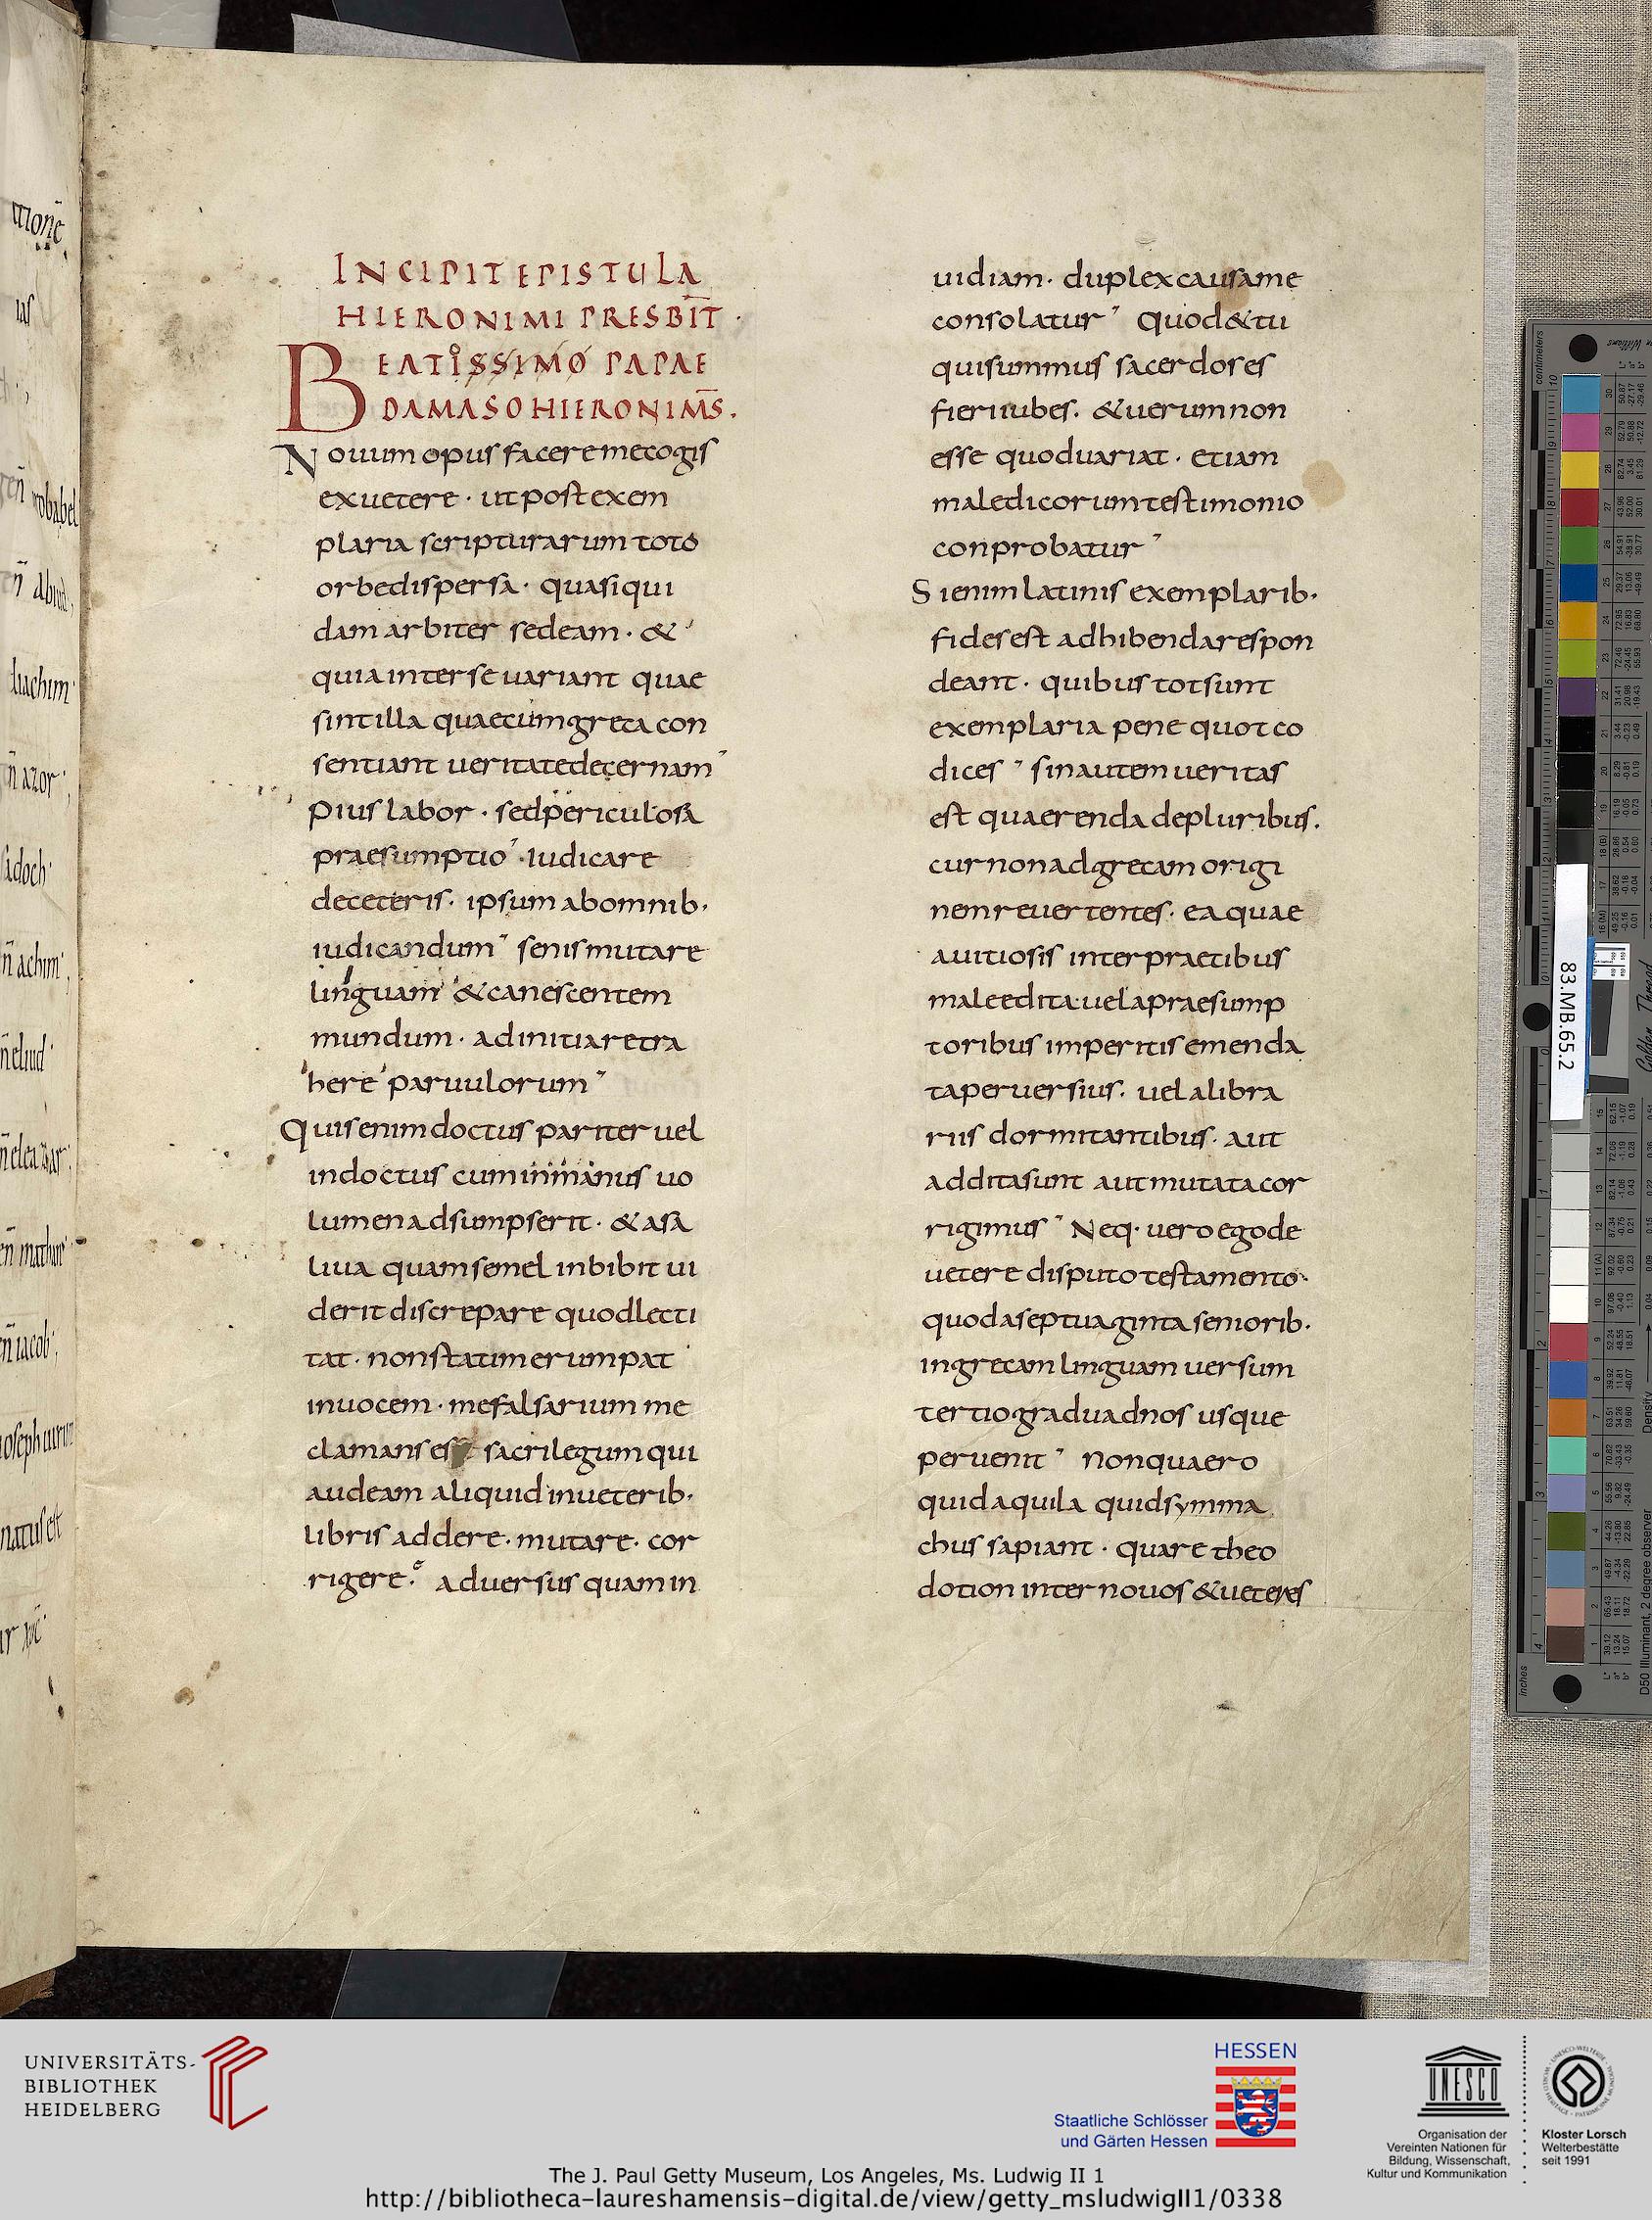 INCIPIT EPISTULA
HIERONIMI PRESBIT̄ ·
BEATISSIMO PAPAE
DAMASO HIERONIM̄S.
Nouum opus facere me cogis
ex uetere · ut post exem
plaria scripturarum toto
orbe dispersa · quasi qui
dam arbiter sedeam · &
quia inter se uariant quae
sint illa quae cum greca con
sentiant ueritate decernam
Pius labor · sed periculosa
praesumptio · Iudicare
de ceteris · ipsum ab omnib·
iudicandum senis mutare
linguam & canescentem
mundum · ad initia retra
here paruulorum
Quis enim doctus pariter uel
indoctus cum in manus uo
lumen adsumpserit · & a sa
liua quam semel inbibit ui
derit discrepare quod lecti
tat · non statim erumpat
in uocem · me falsarium me
clamans es sacrilegum qui
audeam aliquid in ueterib·
libris addere · mutare · cor
rigere · aduersus quam in
uidiam · duplex causa me
consolatur Quod & tu
qui summus sacerdos es
fieri iubes · & uerum non
esse quod uariat · etiam
maledicorum testimonio
conprobatur
Si enim latinis exemplarib·
fides est adhibenda respon
deant · quibus tot sunt
exemplaria pene quot co
dices sin autem ueritas
est quaerenda de pluribus.
cur non ad grecam origi
nem reuertentes · ea quae
a uitiosis interpraetibus
male edita uel a praesump
toribus imperitis emenda
ta peruersius · uel a libra
riis dormitantibus · aut
addita sunt aut mutata cor
rigimus Neq· uero ego de
uetere disputo testamento·
quod a septuaginta seniorib·
in grecam linguam uersum
tertio gradu ad nos usque
peruenit non quaero
quid aquila quid symma
chus sapiant · quare theo
dotion inter nouos & ueteres
83.MB.65.2
UNIVERSITÄTS-
BIBLIOTHEK
HEIDELBERG
HESSEN
Staatliche Schlösser
und Gärten Hessen
UNESCO
Organisation der
Vereinten Nationen für
Bildung, Wissenschaft,
Kultur und Kommunikation
Kloster Lorsch
Welterbestätte
seit 1991
The J. Paul Getty Museum, Los Angeles, Ms. Ludwig II 1
http://bibliotheca-laureshamensis-digital.de/view/getty_msludwigII1/0338